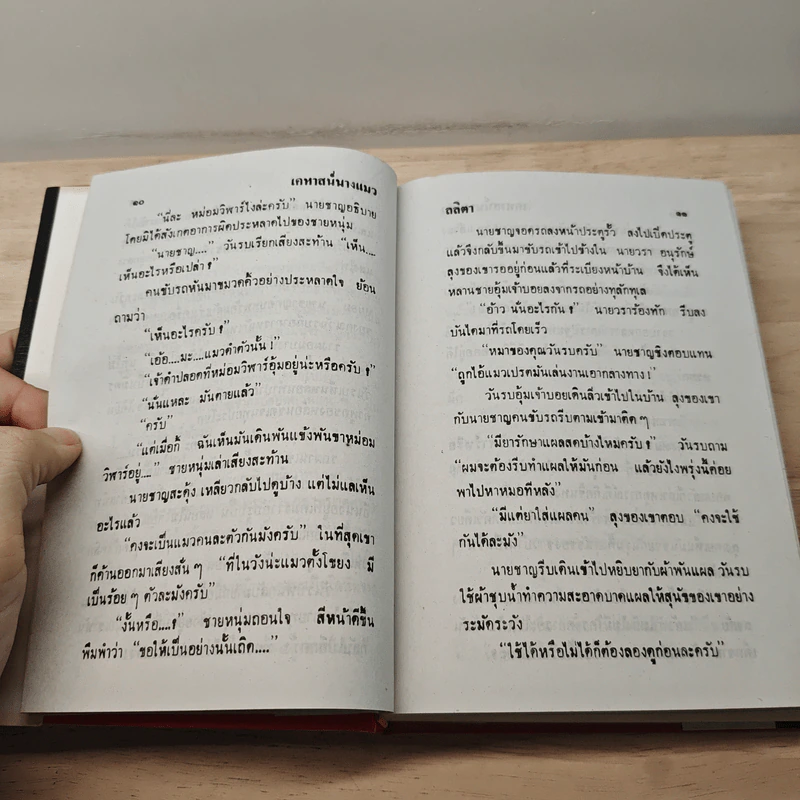 ๑๐
เคหาสน์นางแมว
“นี่ละ หม่อมวิพาร์ไงล่ะครับ” นายชาญอธิบาย
โดยมิได้สังเกตอาการผิดประหลาดไปของชายหนุ่ม
“นายชาญ....” วันรบเรียกเสียงสะท้าน “เห็น....
เห็นอะไรหรือเปล่า ?”
คนขับรถหันมาขมวดคิ้วอย่างประหลาดใจ ย้อน
ถามว่า
“เห็นอะไรครับ ?”
“เอ้อ....มะ....แมวดำตัวนั้น !”
“เจ้าดำปลอดที่หม่อมวิพาร์อุ้มอยู่น่ะหรือครับ ?”
“นั่นแหละ มันตายแล้ว”
“ครับ”
“แต่เมื่อกี้ ฉันเห็นมันเดินพันแข้งพันขาหม่อม
วิพาร์อยู่....” ชายหนุ่มเล่าเสียงสะท้าน
นายชาญสะดุ้ง เหลียวกลับไปดูบ้าง แต่ไม่แลเห็น
อะไรแล้ว
“คงจะเป็นแมวคนละตัวกันมังครับ” ในที่สุดเขา
ก็ค้านออกมาเสียงสั่น ๆ “ที่ในวังน่ะแมวตั้งโขยง มี
เป็นร้อย ๆ ตัวละมังครับ”
“งั้นหรือ....?” ชายหนุ่มถอนใจ สีหน้าดีขึ้น
พึมพำว่า “ขอให้เป็นอย่างนั้นเถิด....”
ลลิตา
๑๑
นายชาญจอดรถลงหน้าประตูรั้ว ลงไปเปิดประตู
แล้วจึงกลับขึ้นมาขับรถเข้าไปข้างใน นายวรา อนุรักษ์
ลุงของเขารออยู่ก่อนแล้วที่ระเบียงหน้าบ้าน จึงได้เห็น
หลานชายอุ้มเจ้าบอยลงจากรถอย่างทุลักทุเล
“อ้าว นั่นอะไรกัน ?” นายวราร้องทัก รีบลง
บันไดมาที่รถโดยเร็ว
“หมาของคุณวันรบครับ” นายชาญชิงตอบแทน
“ถูกไอ้แมวเปรตมันเล่นงานเอากลางทาง !”
วันรบอุ้มเจ้าบอยเดินลิ่วเข้าไปในบ้าน ลุงของเขา
กับนายชาญคนขับรถรีบตามเข้ามาติด ๆ
“มียารักษาแผลสดบ้างไหมครับ ?” วันรบถาม
“ผมจะต้องรีบทำแผลให้มันก่อน แล้วยังไงพรุ่งนี้ค่อย
พาไปหาหมอทีหลัง”
“มีแต่ยาใส่แผลคน” ลุงของเขาตอบ “คงจะใช้
กันได้ละมัง”
นายชาญรีบเดินเข้าไปหยิบยากับผ้าพันแผล วันรบ
ใช้ผ้าชุบน้ำทำความสะอาดบาดแผลให้สุนัขของเขาอย่าง
ระมัดระวัง
“ใช้ได้หรือไม่ได้ก็ต้องลองดูก่อนละครับ”